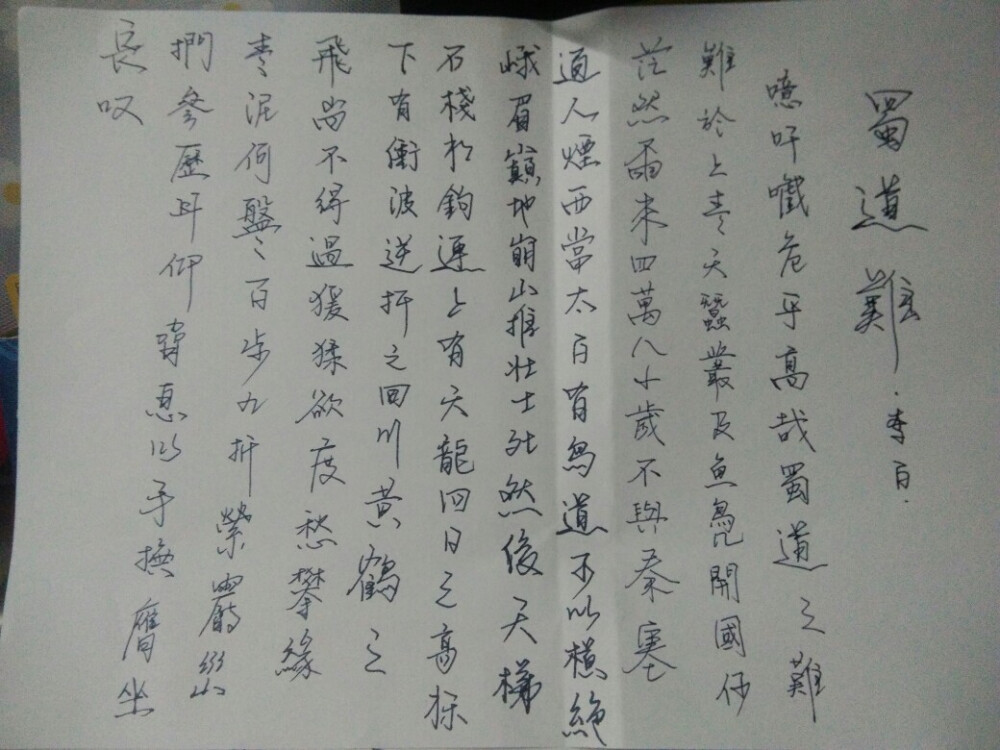 蜀道難·李白·
噫吁嚱危乎高哉蜀道之難
難於上青天蠶叢及魚鳧開國何
茫然爾来四萬八千歲不與秦塞
通人煙西當太白有鳥道可以橫絶
峨眉巔地崩山摧壯士死然後天梯
石棧相鉤連上有六龍回日之高標
下有衝波逆折之回川黃鶴之
飛尚不得過猨猱欲度愁攀緣
青泥何盤〻百步九折縈巖巒
捫參歷井仰脅息以手撫膺坐
長叹